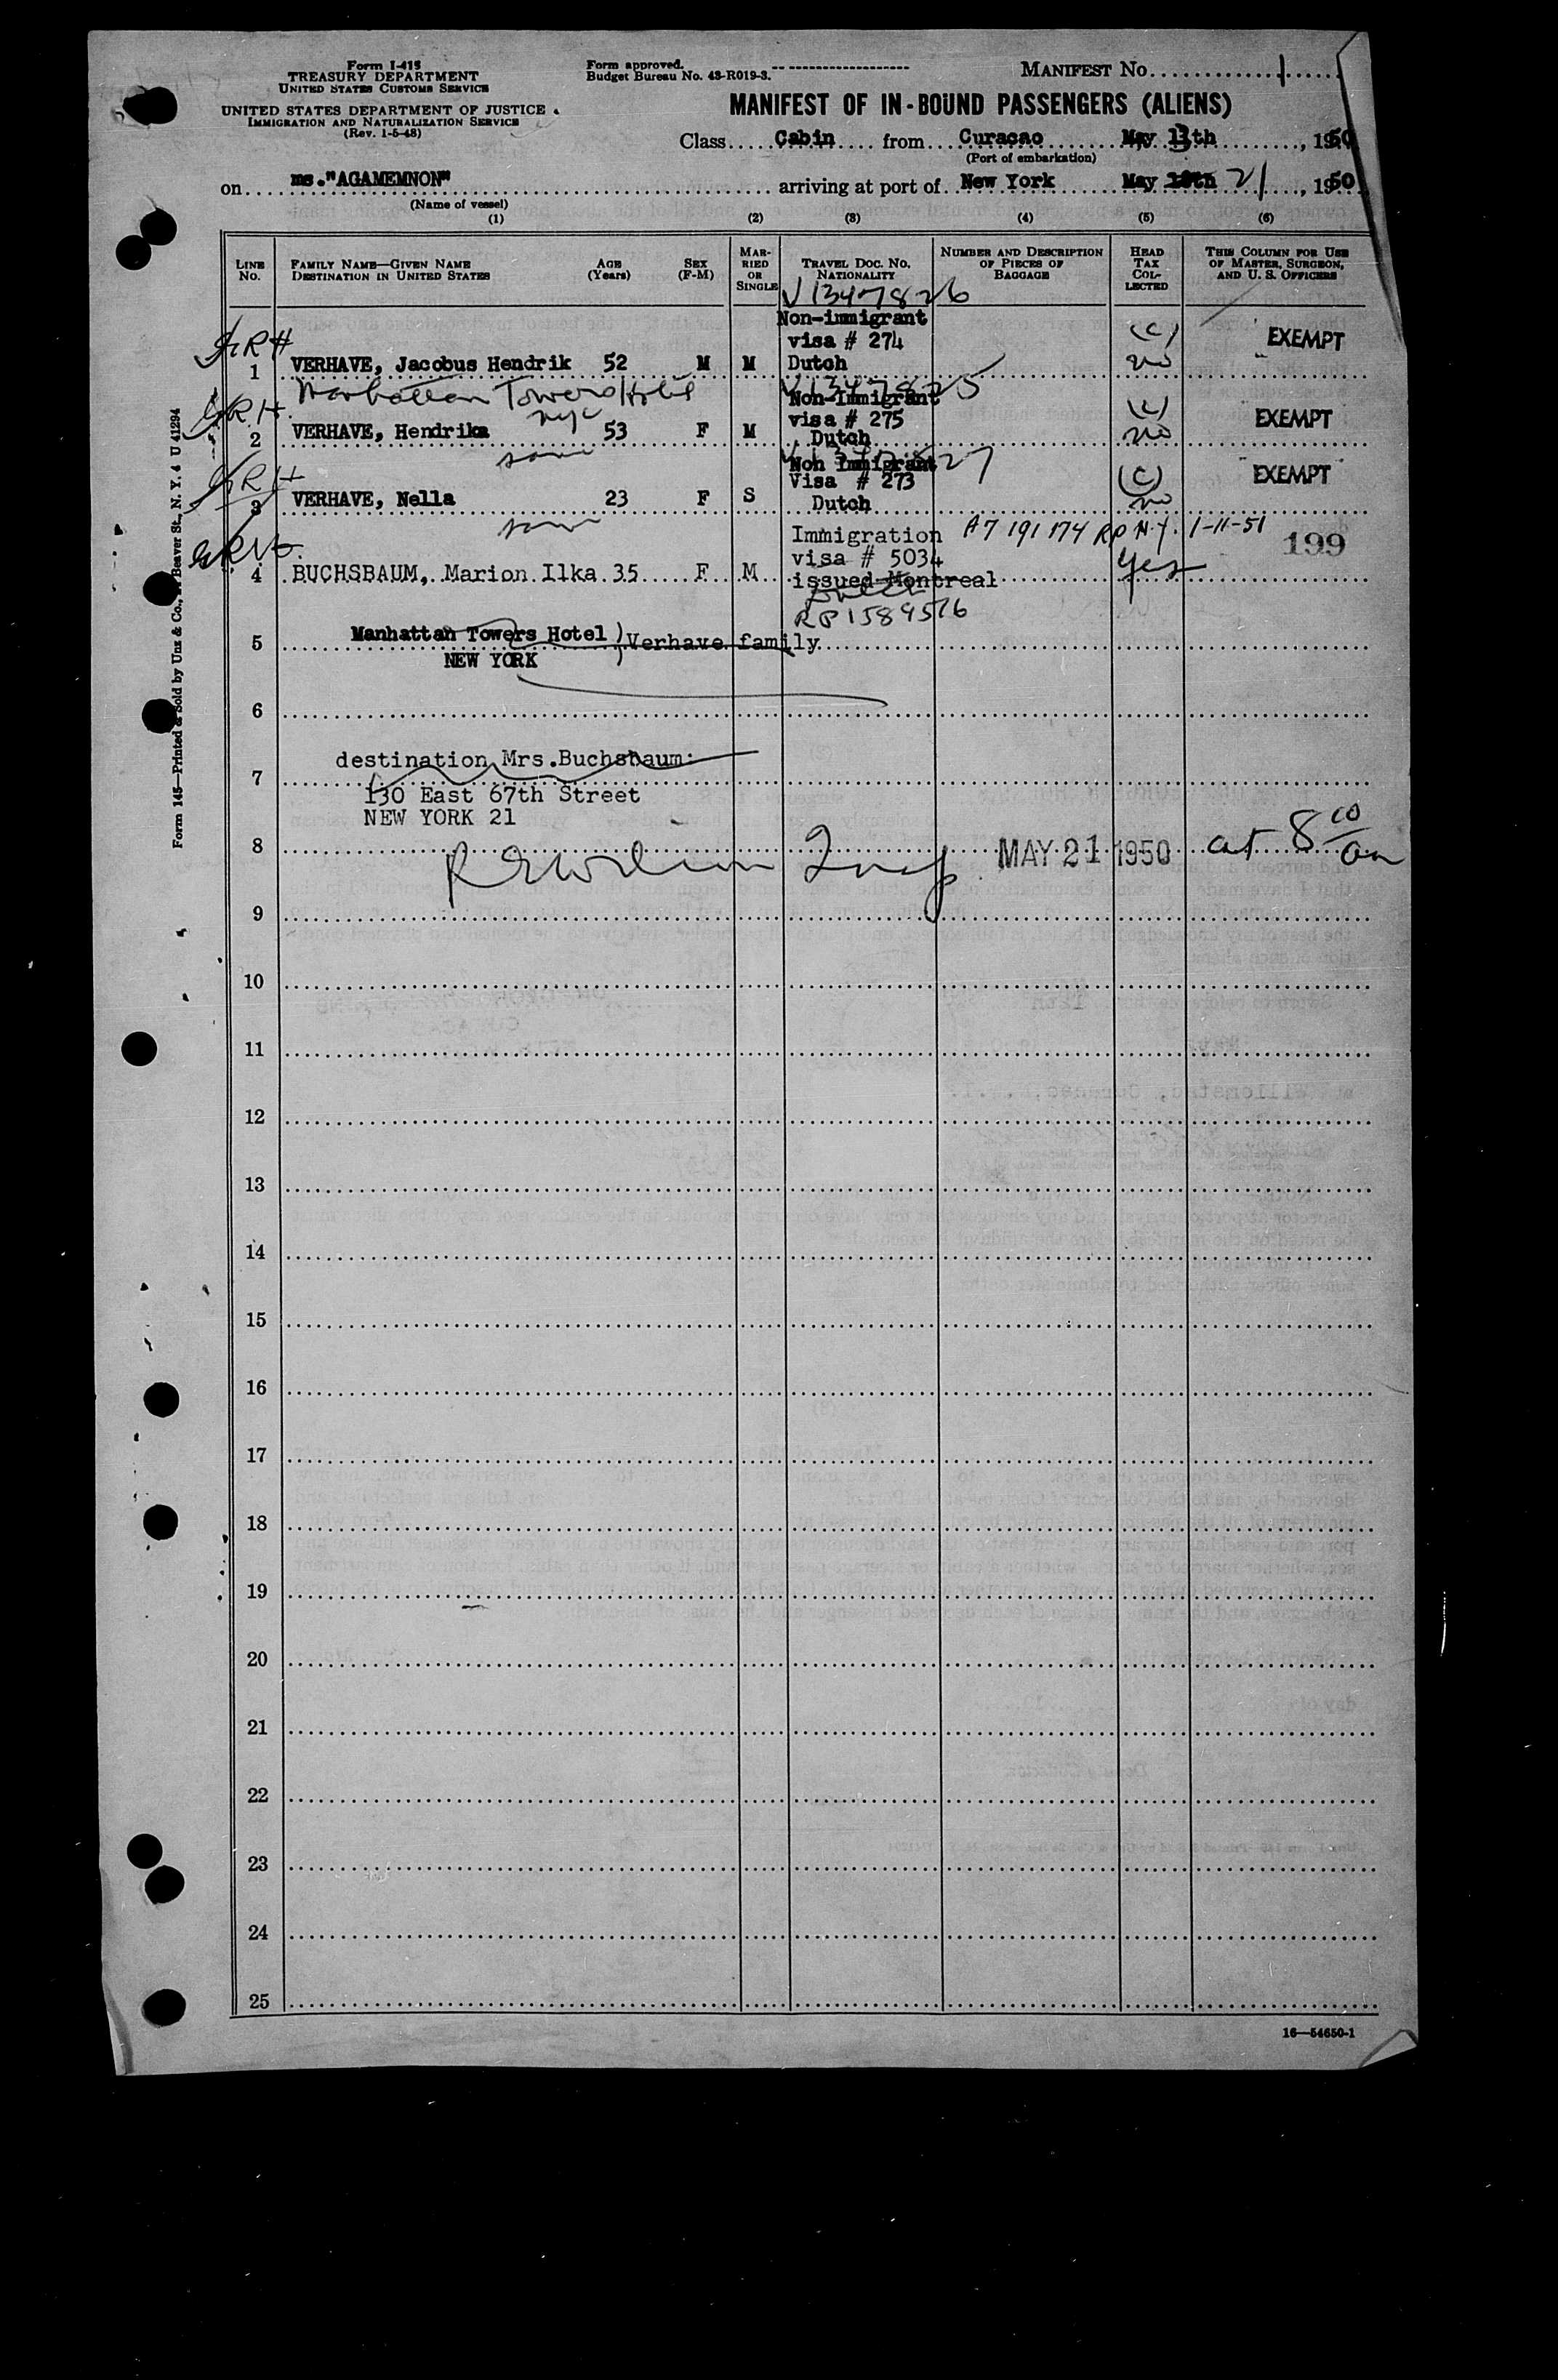 Form I-415
TREASURY DEPARTMENT
UNITED STATES CUSTOMS SERVICE
UNITED STATES DEPARTMENT OF JUSTICE
IMMIGRATION AND NATURALIZATION SERVICE
(Rev. 1-5-48)
Form approved.
Budget Bureau No. 43-R019-3.
MANIFEST No. 1
MANIFEST OF IN-BOUND PASSENGERS (ALIENS)
Class Cabin from Curacao May 13th, 1950
(Port of embarkation)
on ms."AGAMEMNON" arriving at port of New York May 18th 21, 1950
(Name of vessel)
(1) (2) (3) (4) (5) (6)
LINE No.
FAMILY NAME—GIVEN NAME
DESTINATION IN UNITED STATES
AGE (Years)
SEX (F-M)
MARRIED OR SINGLE
TRAVEL DOC. NO. NATIONALITY
NUMBER AND DESCRIPTION OF PIECES OF BAGGAGE
HEAD TAX COLLECTED
THIS COLUMN FOR USE OF MASTER, SURGEON, AND U. S. OFFICERS
V1347826
Non-immigrant
visa # 274
1 VERHAVE, Jacobus Hendrik 52 M M Dutch (c) no EXEMPT
Manhattan Towers Hotel
NYC
V1347825
Non-Immigrant
visa # 275
2 VERHAVE, Hendrika 53 F M Dutch (c) no EXEMPT
same
V1347827
Non Immigrant
Visa # 273
3 VERHAVE, Nella 23 F S Dutch (c) no EXEMPT
same
Immigration A7 191 174 RP N.Y. 1-11-51 199
visa # 5034
4 BUCHSBAUM, Marion Ilka 35 F M issued Montreal Yes
Dutch
RP1589576
5 Manhattan Towers Hotel ) Verhave family
NEW YORK )
6
destination Mrs.Buchsbaum:
7
130 East 67th Street
NEW YORK 21
8 MAY 21 1950 at 8 10/am
9
10
11
12
13
14
15
16
17
18
19
20
21
22
23
24
25
16—54650-1
Form 145—Printed & Sold by Unz & Co., Beaver St., N. Y. 4 U 41294